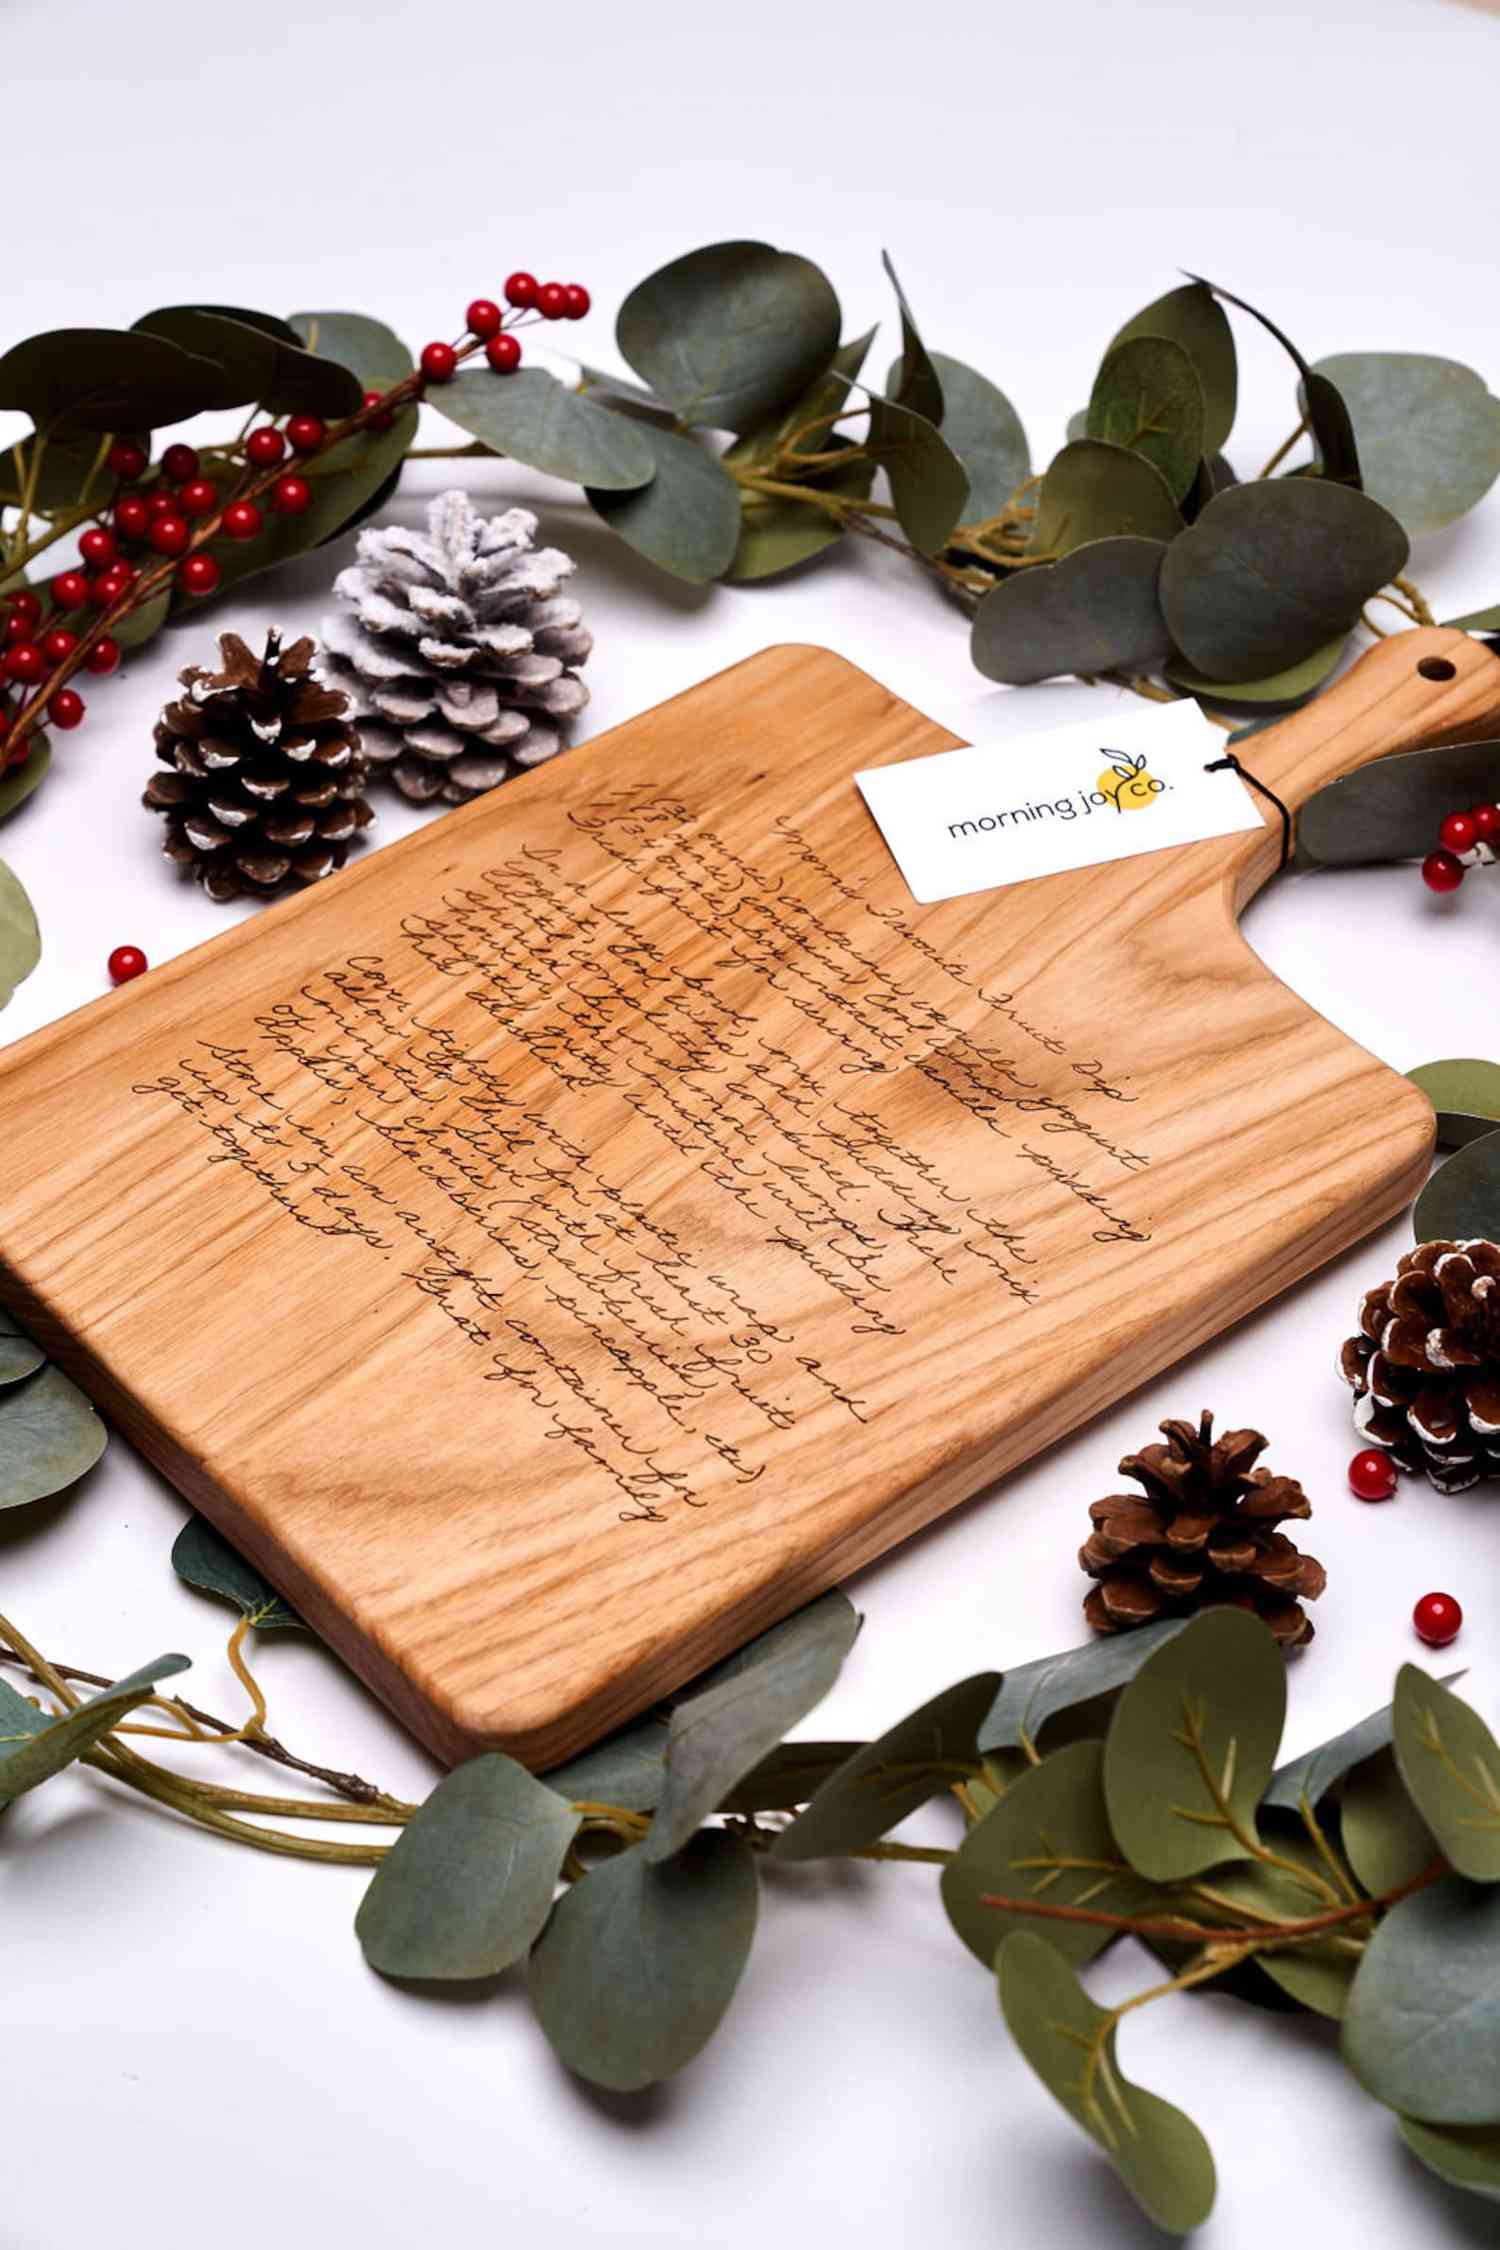 morning joy co.
Mom's Favorite Fruit Dip
1 (32 ounce) container vanilla yogurt
1 (8 ounce) container Cool Whip
1 (3.4 ounce) box instant vanilla pudding
Fresh fruit for serving
In a large bowl, mix together the
yogurt, Cool Whip and pudding mix
until completely combined. There
should be no more lumps.
the mixture will be
slightly gritty until the pudding
has dissolved.
Cover tightly with plastic wrap and
allow to chill for at least 30
minutes. Serve with fresh fruits
of your choice (strawberries,
apples, blackberries, pineapple, etc)
Store in an airtight container for
up to 5 days. Great for family
get-togethers.